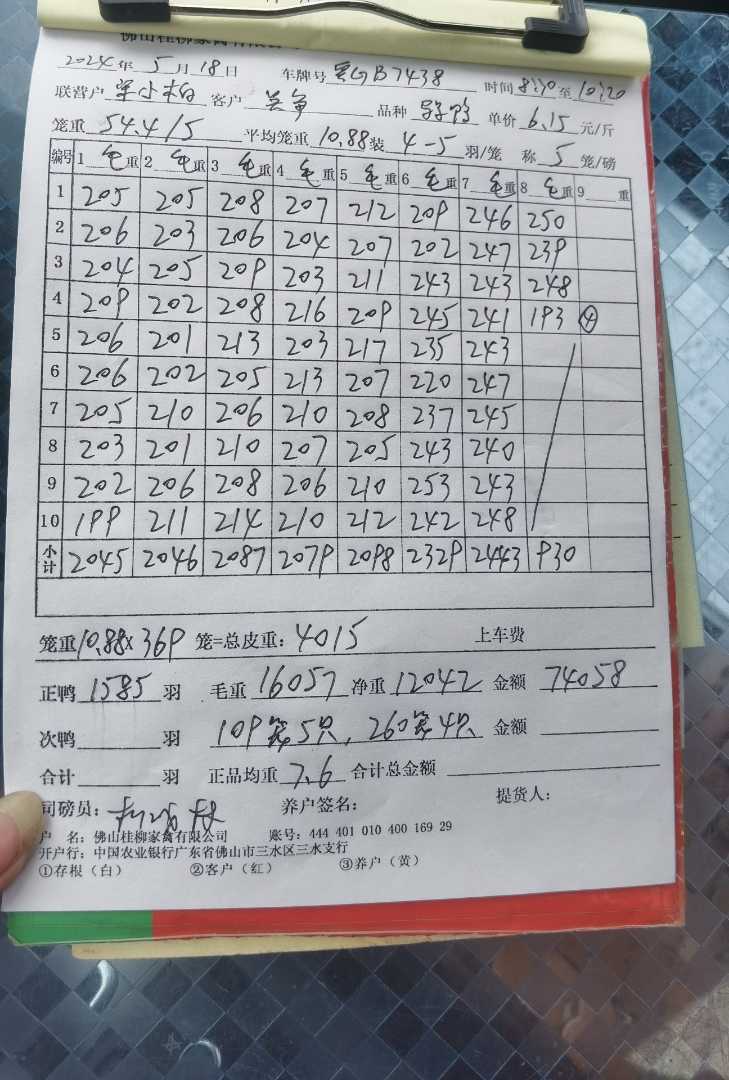 佛山桂柳家禽有限公司
2024年5月18日 车牌号 GB7438 时间 8:20至10:20
联营户 小柏 客户 品种 单价 6.15 元/斤
笼重 54.4/5 平均笼重 10.88 装 4-5 羽/笼 称 5 笼/磅
编号 1 毛重 2 毛重 3 毛重 4 毛重 5 毛重 6 毛重 7 毛重 8 毛重 9 重
1 205 205 208 207 212 209 246 250
2 206 203 206 204 207 202 247 239
3 204 205 209 203 211 243 243 248
4 209 202 208 216 209 245 241 193 ④
5 206 201 213 203 217 235 243
6 206 202 205 213 207 220 247
7 205 210 206 210 208 237 245
8 203 201 210 207 205 243 240
9 202 206 208 206 210 253 243
10 199 211 214 210 212 242 248
小计 2045 2046 2087 2079 2098 2329 2443 930
笼重 10.88 x 369 笼=总皮重: 4015 上车费
正鸭 1585 羽 毛重 16057 净重 12042 金额 74058
次鸭 羽 109笼5只, 260笼4只 金额
合计 羽 正品均重 7.6 合计总金额
司磅员: 养户签名: 提货人:
户 名: 佛山桂柳家禽有限公司 账号: 444 401 010 400 169 29
开户行: 中国农业银行广东省佛山市三水区三水支行
①存根(白) ②客户(红) ③养户(黄)